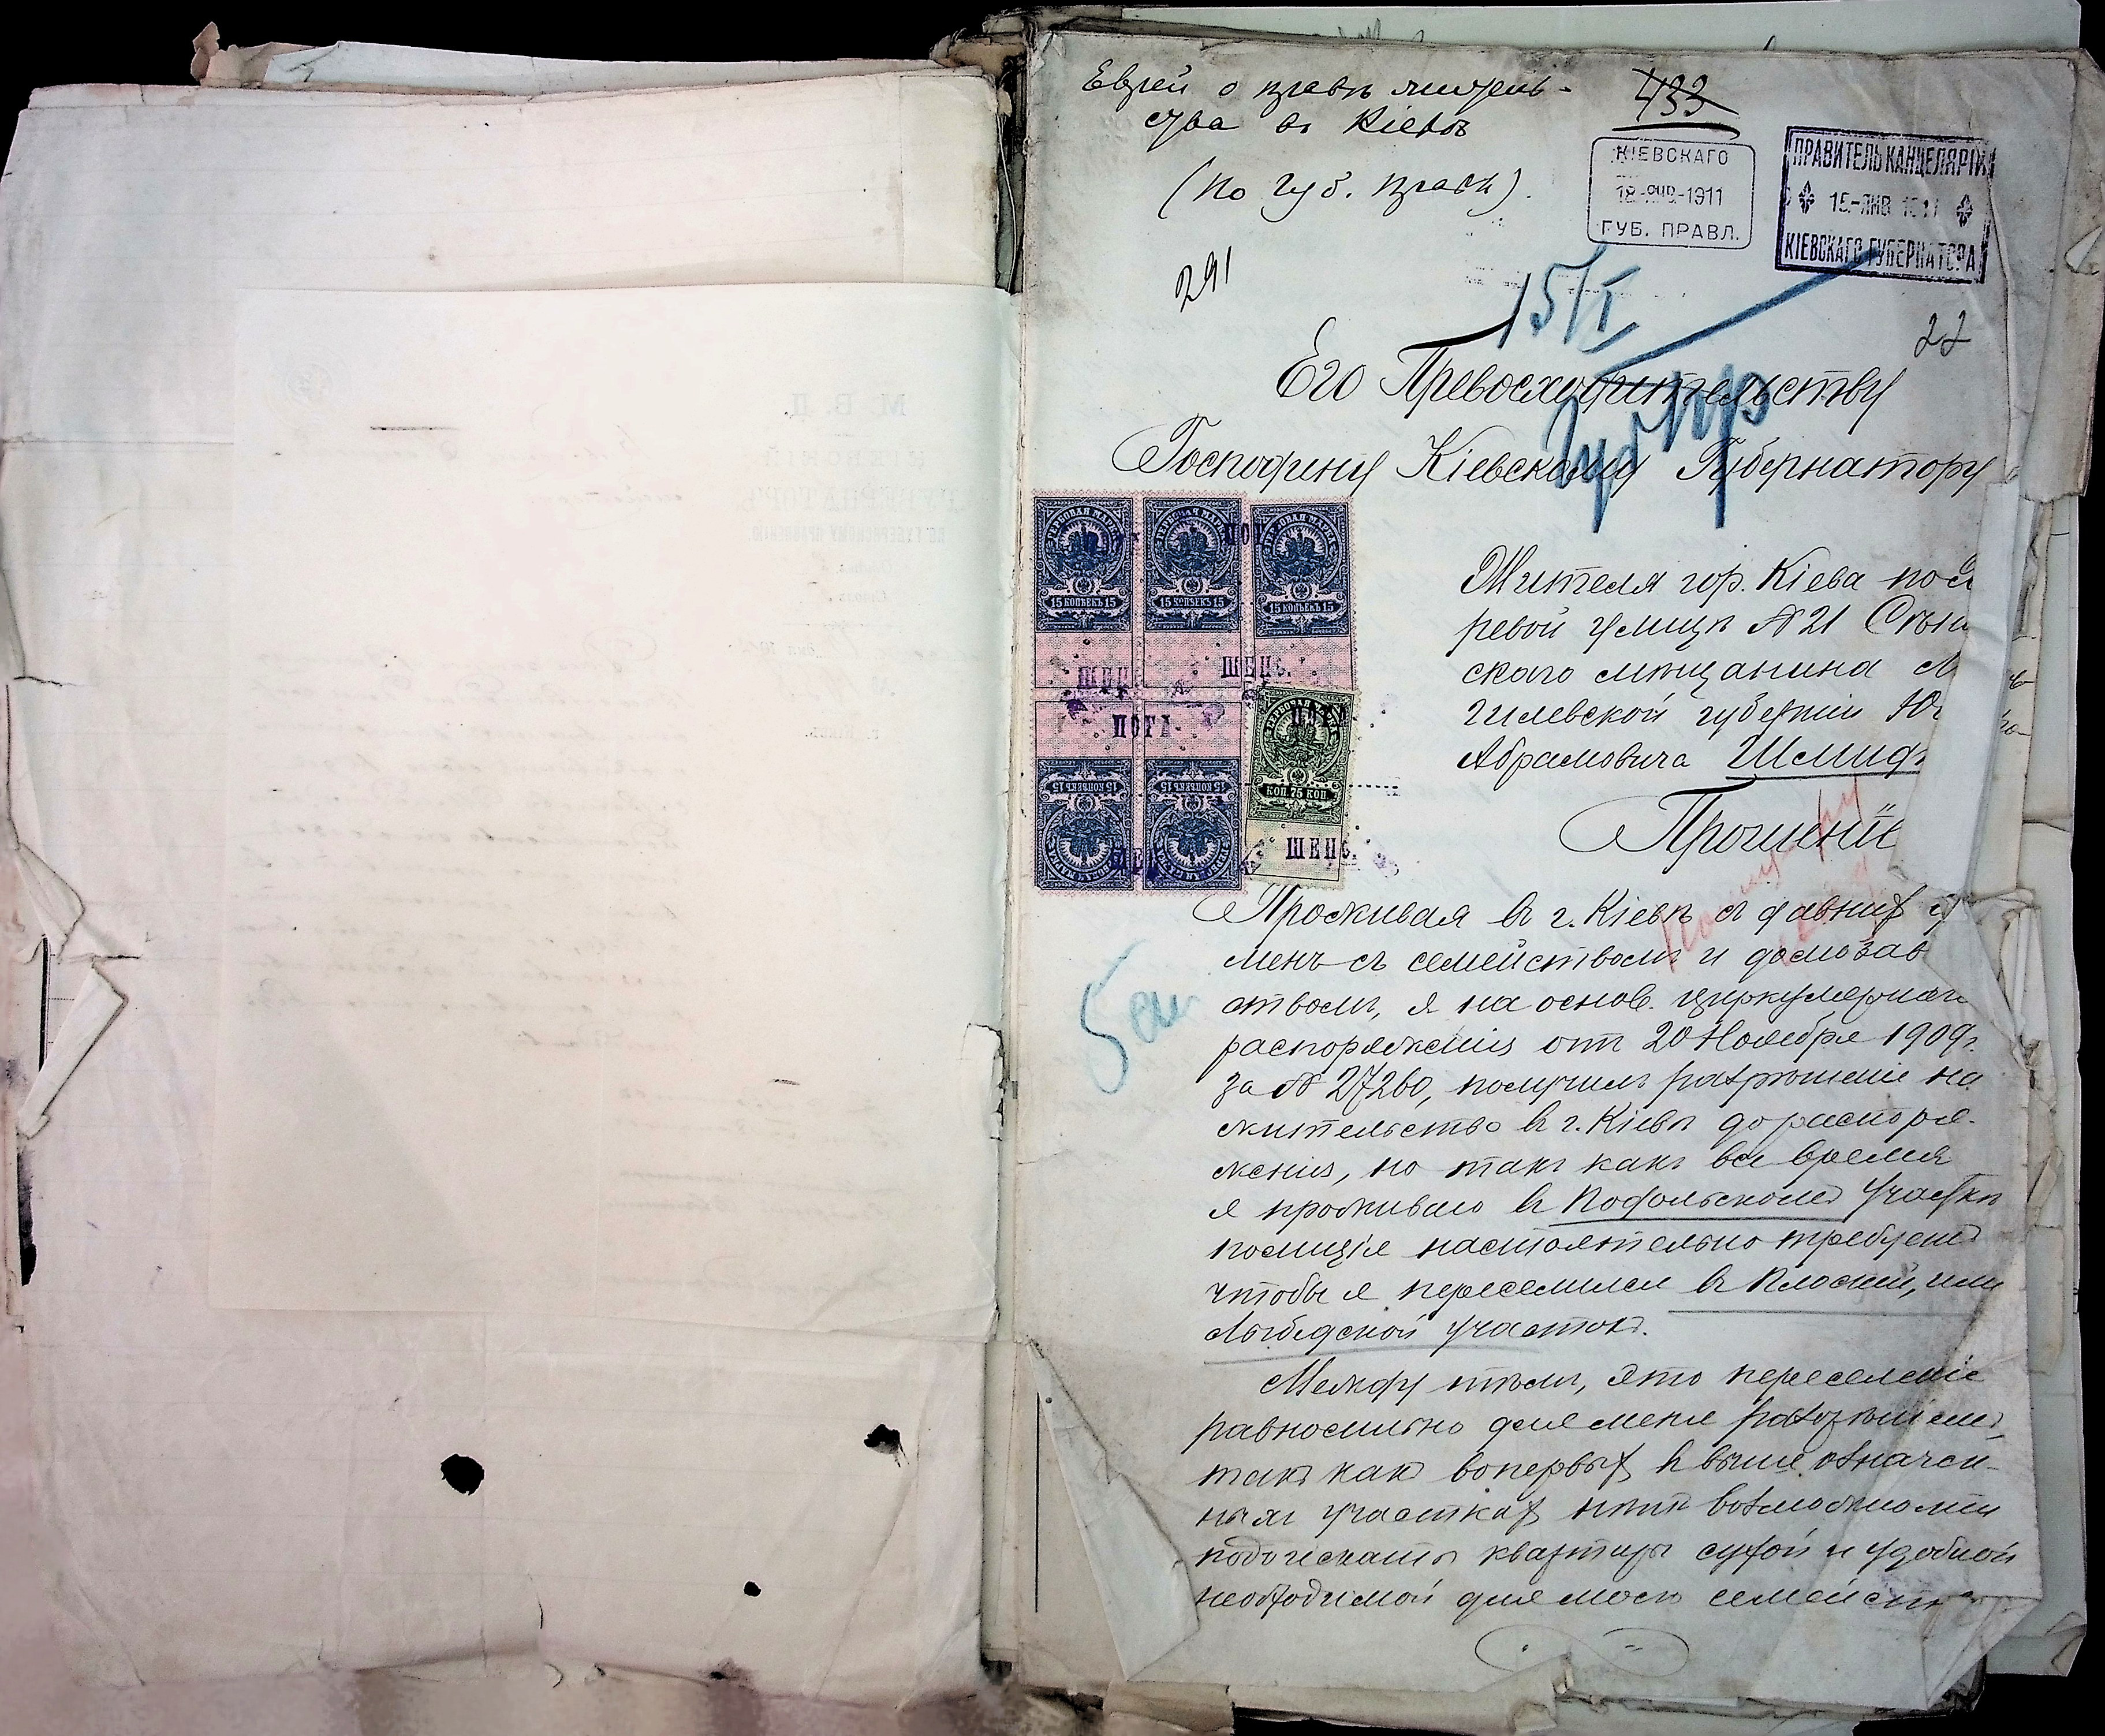 Еврей о правѣ житель-
ства въ Кіевѣ
(по губ. правл).
433
КІЕВСКАГО
18-ЯНВ.-1911
ГУБ. ПРАВЛ.
ПРАВИТЕЛЬ КАНЦЕЛЯРІИ
15-ЯНВ 1911
КІЕВСКАГО ГУБЕРНАТОРА
291
15/I
22
Его Превосходительству
Губ Пр
Господину Кіевскому Губернатору
ГЕРБОВАЯ МАРКА
15 КОПѢЕКЪ 15
ГЕРБОВАЯ МАРКА
15 КОПѢЕКЪ 15
ГЕРБОВАЯ МАРКА
15 КОПѢЕКЪ 15
ПОГА
ШЕНЪ.
15 КОПѢЕКЪ 15
15 КОПѢЕКЪ 15
КОП. 75 КОП.
ПОГА
ШЕНЪ.
Жителя гор. Кіева по
ревой улицѣ № 21 Сѣнн
скаго мѣщанина М
гилевской губерніи Ю
Абрамовича Шмид
Прошеніе
Проживая въ г. Кіевѣ съ давнихъ
менъ съ семействомъ и домозав
ствомъ, я на основ. циркулярнаго
распоряженія отъ 20 Ноября 1909 г.
за № 27260, получилъ разрѣшеніе на
жительство въ г. Кіевѣ до распоря-
женія, но такъ какъ все время
я проживаю въ Подольскомъ участкѣ
полиція настоятельно требуетъ
чтобы я переселился въ Плоскій, или
Лыбедской участокъ.
Между тѣмъ, это переселеніе
равносильно для меня
такъ какъ вопервыхъ въ выше означен-
ныхъ участкахъ нѣтъ возможности
подыскать квартиры сухой и удобной
необходимой для моего семейст